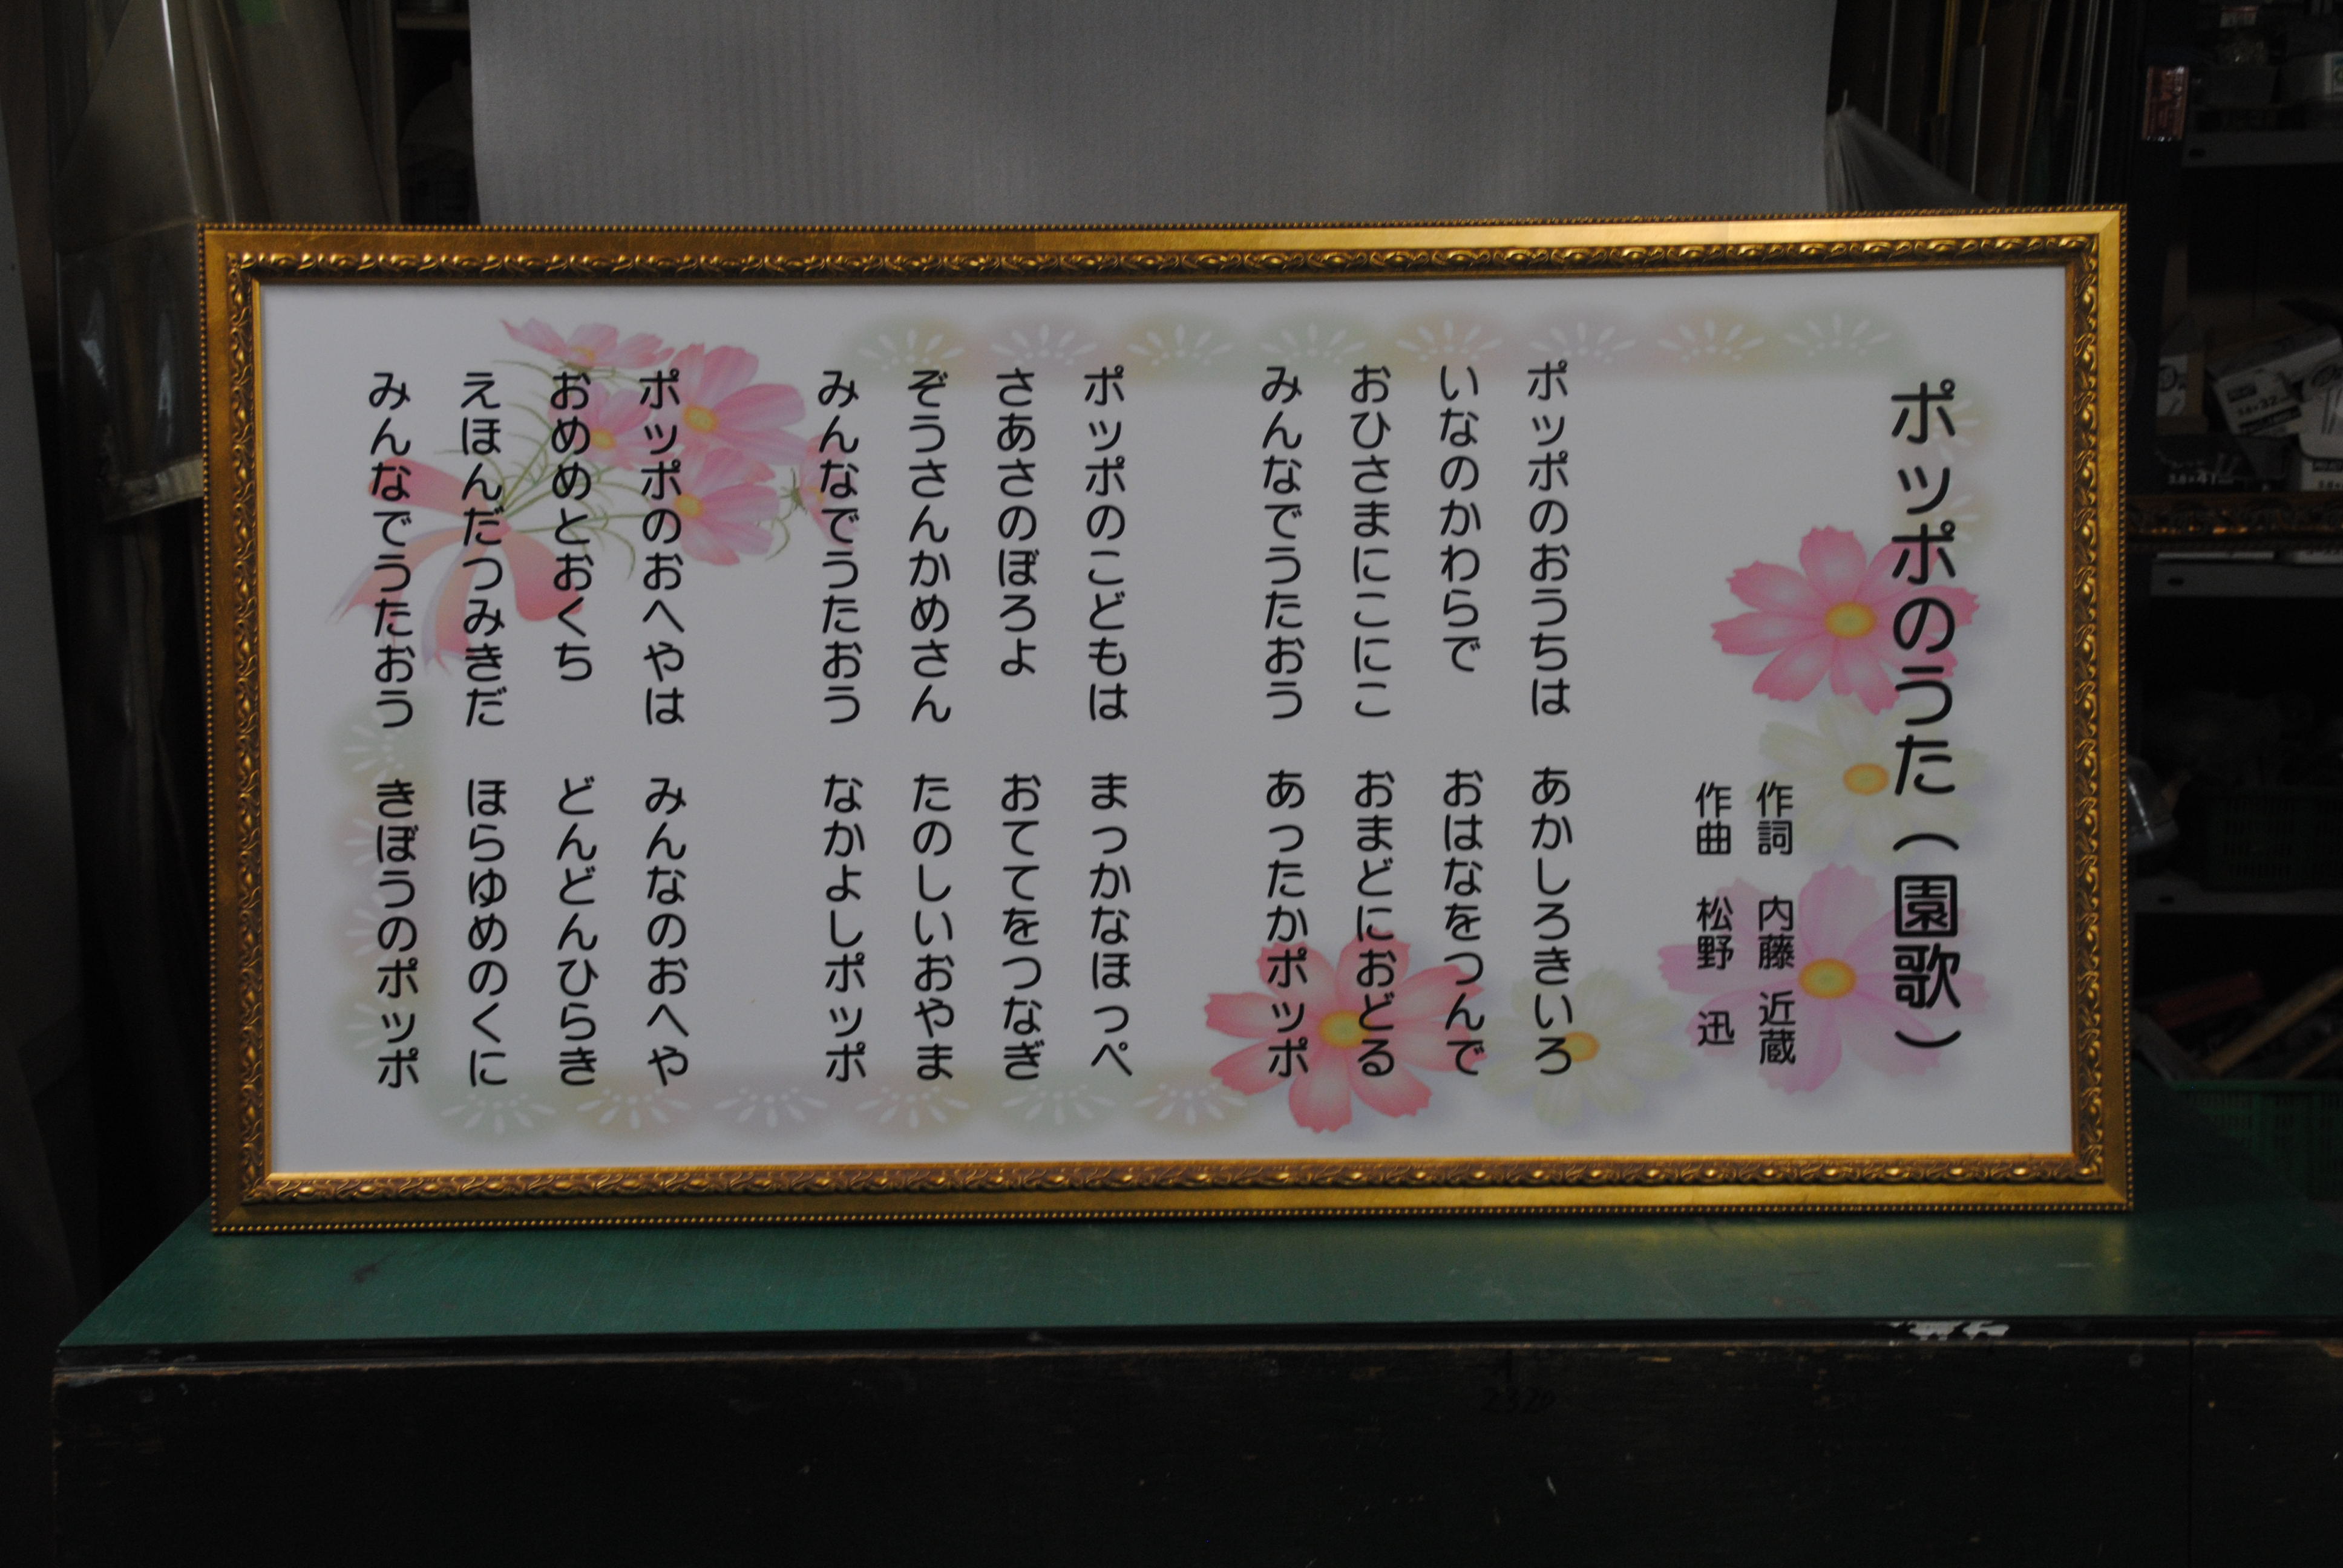 ポッポのうた（園歌）
作詞　内藤　近蔵
作曲　松野　迅
ポッポのおうちは　あかしろきいろ
いなのかわらで　おはなをつんで
おひさまにこにこ　おまどにおどる
みんなでうたおう　あったかポッポ
ポッポのこどもは　まっかなほっぺ
さあさのぼろよ　おててをつなぎ
ぞうさんかめさん　たのしいおやま
みんなでうたおう　なかよしポッポ
ポッポのおへやは　みんなのおへや
おめめとおくち　どんどんひらき
えほんだつみきだ　ほらゆめのくに
みんなでうたおう　きぼうのポッポ